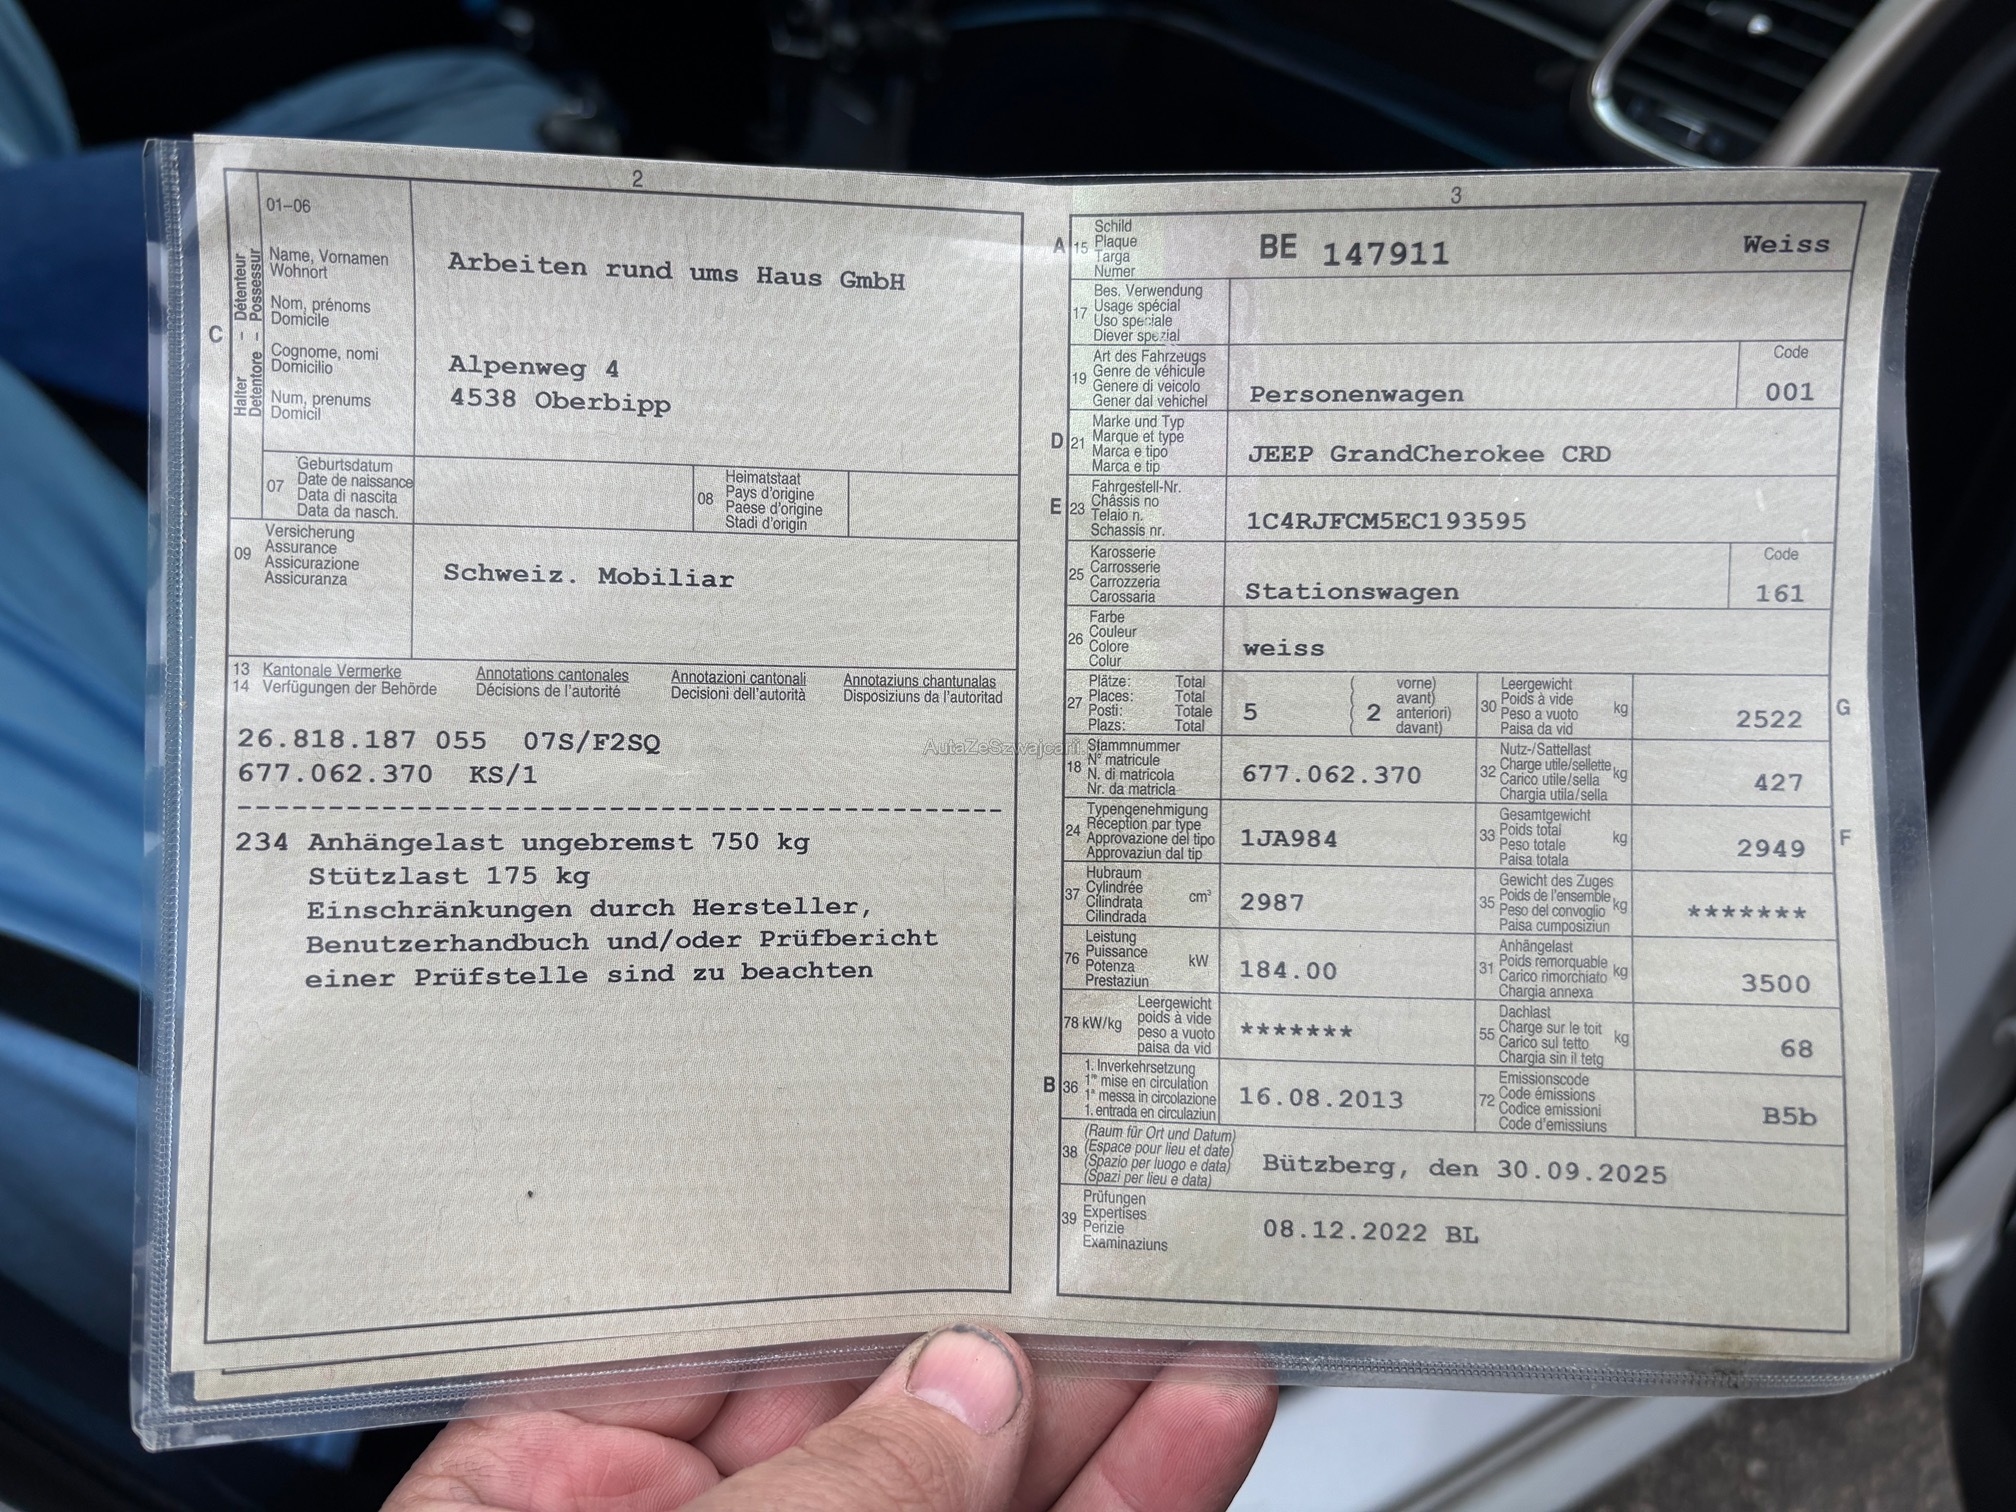 2
01-06
Halter – Détenteur
Detentore – Possessur
C
Name, Vornamen
Wohnort
Nom, prénoms
Domicile
Cognome, nomi
Domicilio
Num, prenums
Domicil
Arbeiten rund ums Haus GmbH
Alpenweg 4
4538 Oberbipp
07
Geburtsdatum
Date de naissance
Data di nascita
Data da nasch.
08
Heimatstaat
Pays d'origine
Paese d'origine
Stadi d'origin
09
Versicherung
Assurance
Assicurazione
Assicuranza
Schweiz. Mobiliar
13 Kantonale Vermerke Annotations cantonales Annotazioni cantonali Annotaziuns chantunalas
14 Verfügungen der Behörde Décisions de l'autorité Decisioni dell'autorità Disposiziuns da l'autoritad
26.818.187 055 07S/F2SQ
677.062.370 KS/1
234 Anhängelast ungebremst 750 kg
Stützlast 175 kg
Einschränkungen durch Hersteller,
Benutzerhandbuch und/oder Prüfbericht
einer Prüfstelle sind zu beachten
3
A 15
Schild
Plaque
Targa
Numer
BE 147911 Weiss
17
Bes. Verwendung
Usage spécial
Uso speciale
Diever spezial
19
Art des Fahrzeugs
Genre de véhicule
Genere di veicolo
Gener dal vehichel
Personenwagen
Code
001
D 21
Marke und Typ
Marque et type
Marca e tipo
Marca e tip
JEEP GrandCherokee CRD
E 23
Fahrgestell-Nr.
Châssis no
Telaio n.
Schassis nr.
1C4RJFCM5EC193595
25
Karosserie
Carrosserie
Carrozzeria
Carossaria
Stationswagen
Code
161
26
Farbe
Couleur
Colore
Colur
weiss
27
Plätze: Total
Places: Total
Posti: Totale
Plazs: Total
5
2
vorne)
avant)
anteriori)
davant)
30
Leergewicht
Poids à vide
Peso a vuoto
Paisa da vid
kg
2522
G
AutaZeSzwajcarii
18
Stammnummer
N° matricule
N. di matricola
Nr. da matricla
677.062.370
32
Nutz-/Sattellast
Charge utile/sellette
Carico utile/sella
Chargia utila/sella
kg
427
24
Typengenehmigung
Réception par type
Approvazione del tipo
Approvaziun dal tip
1JA984
33
Gesamtgewicht
Poids total
Peso totale
Paisa totala
kg
2949
F
37
Hubraum
Cylindrée
Cilindrata
Cilindrada
cm³
2987
35
Gewicht des Zuges
Poids de l'ensemble
Peso del convoglio
Paisa cumposiziun
kg
*******
76
Leistung
Puissance
Potenza
Prestaziun
kW
184.00
31
Anhängelast
Poids remorquable
Carico rimorchiato
Chargia annexa
kg
3500
78 kW/kg
Leergewicht
poids à vide
peso a vuoto
paisa da vid
*******
55
Dachlast
Charge sur le toit
Carico sul tetto
Chargia sin il tetg
kg
68
B 36
1. Inverkehrsetzung
1re mise en circulation
1a messa in circolazione
1. entrada en circulaziun
16.08.2013
72
Emissionscode
Code émissions
Codice emissioni
Code d'emissiuns
B5b
38
(Raum für Ort und Datum)
(Espace pour lieu et date)
(Spazio per luogo e data)
(Spazi per lieu e data)
Bützberg, den 30.09.2025
39
Prüfungen
Expertises
Perizie
Examinaziuns
08.12.2022 BL